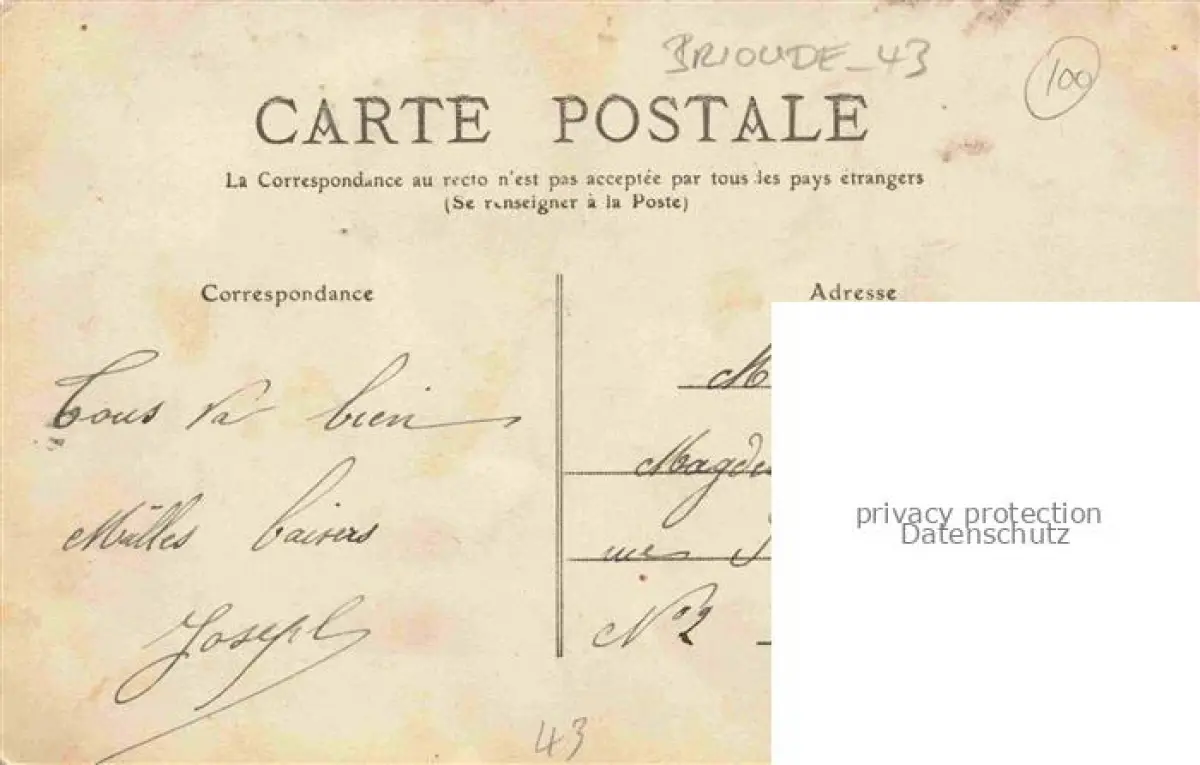 BRIOUDE_43
100
CARTE POSTALE
La Correspondance au recto n'est pas acceptée par tous les pays étrangers
(Se renseigner à la Poste)
Correspondance
Adresse
Tous va bien
Milles baisers
Joseph
M
N° 2
43
privacy protection
Datenschutz